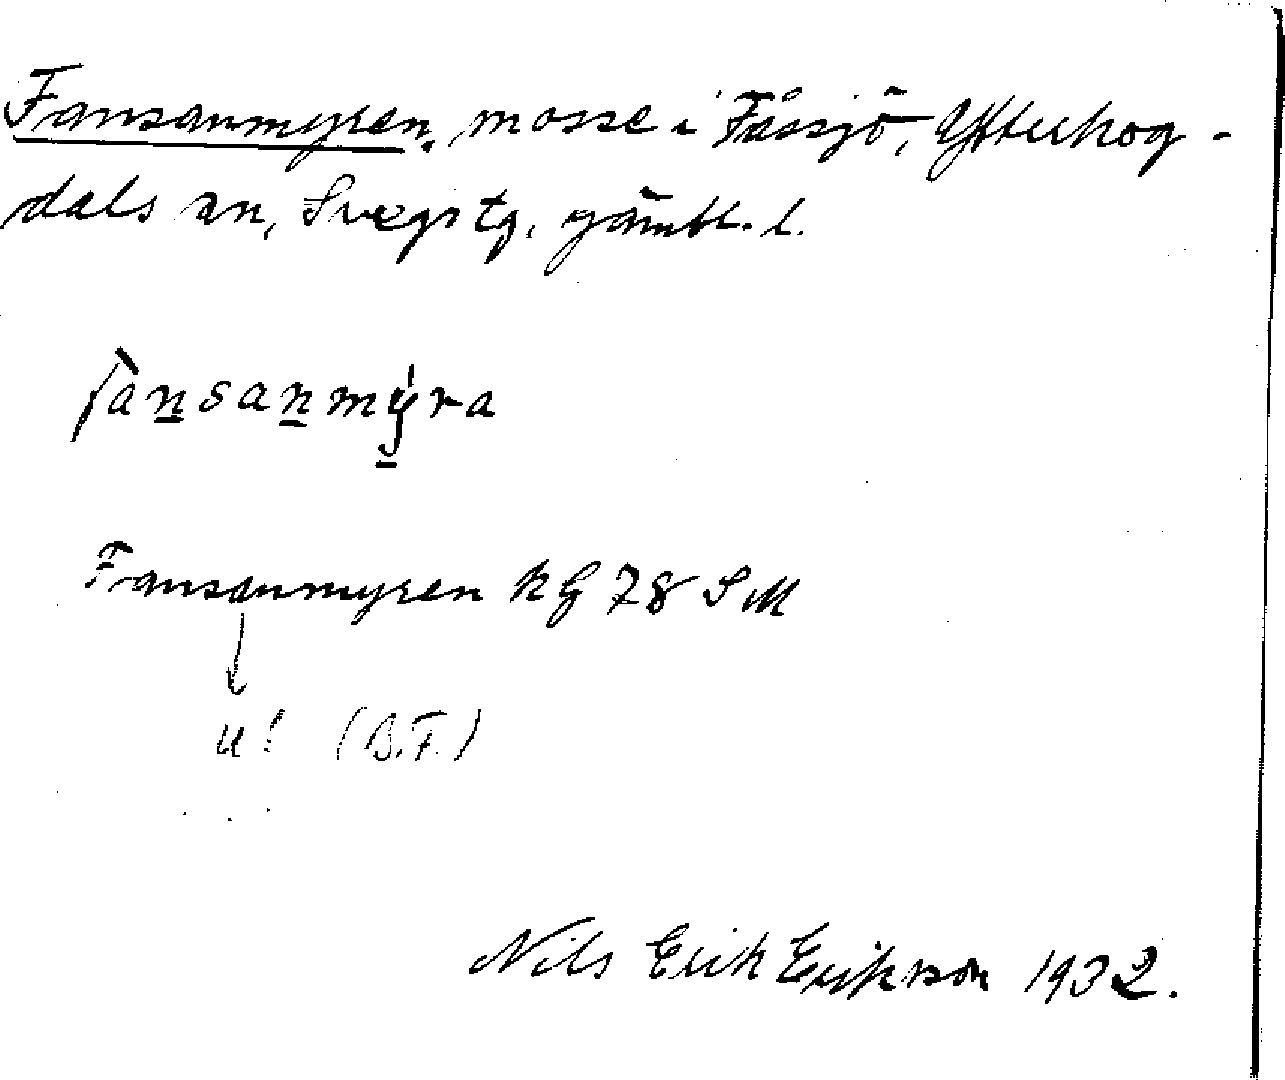 Fansanmyren, mosse i Fåssjö, Ytterhog-
dals sn, Svegs tg, Jämtl. l.
fànsanmýra
Fansanmyren kG 78 SM
u! (B.F.)
Nils Erik Erikson 1932.